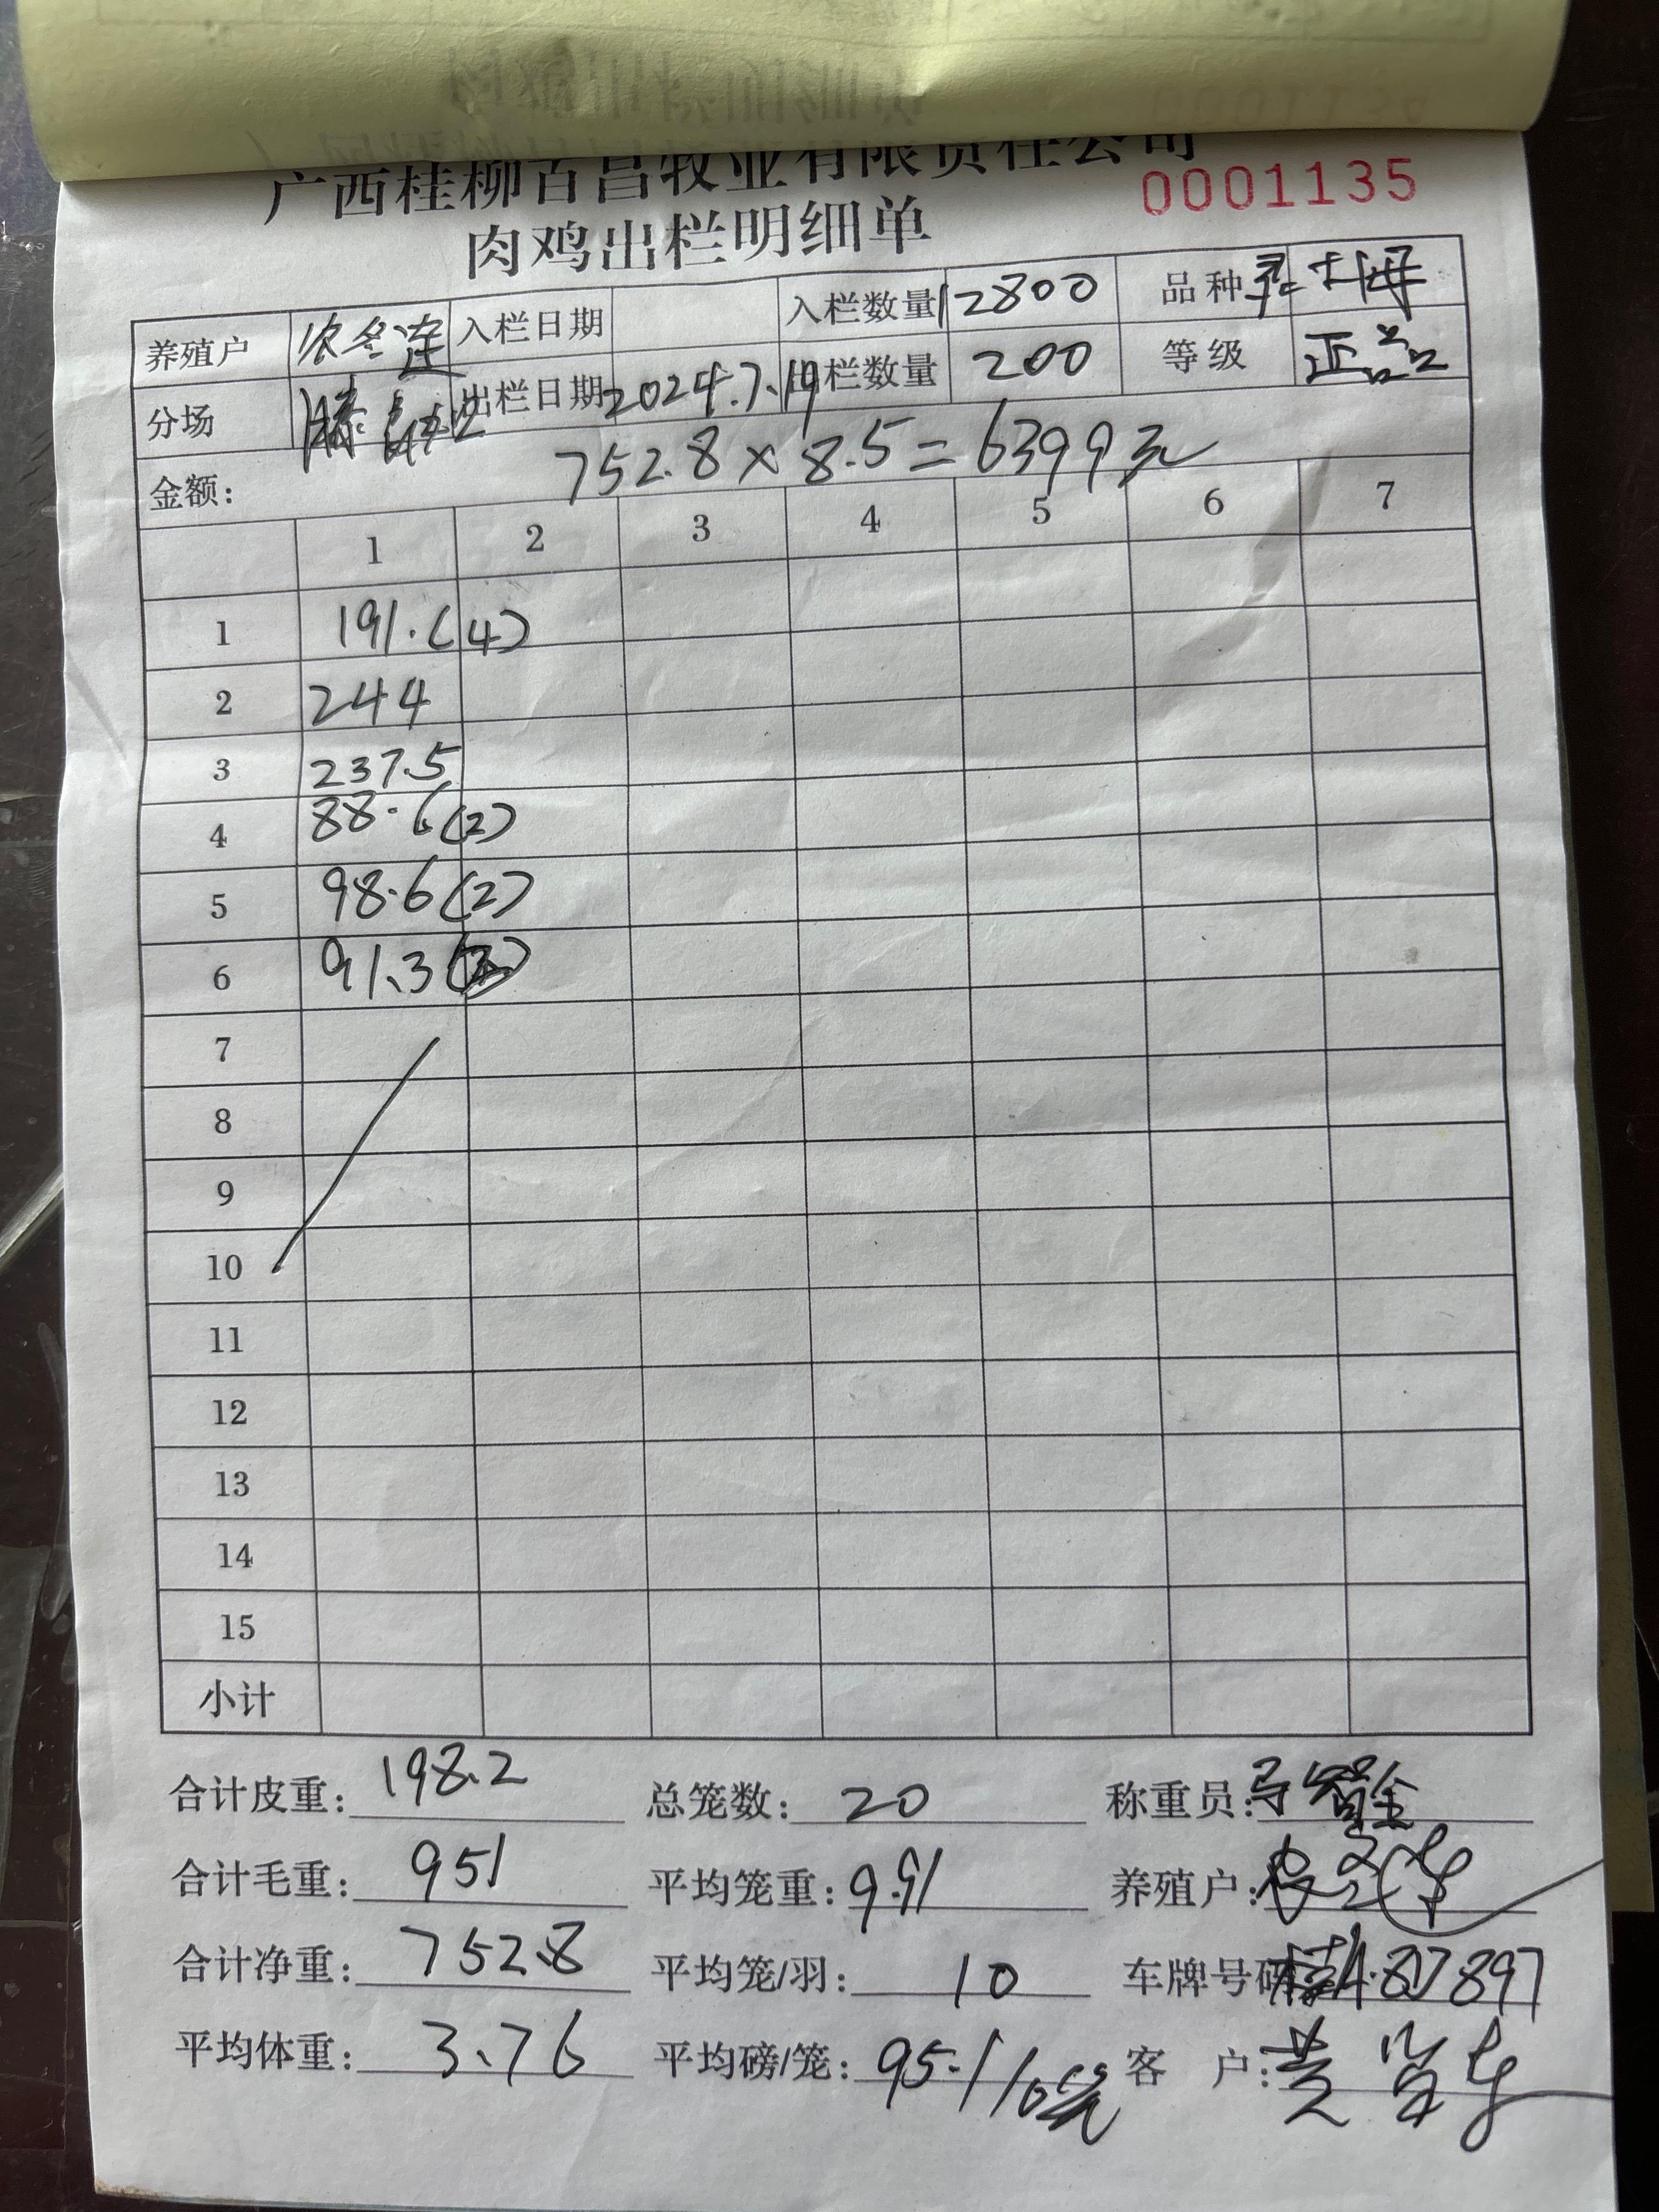 广西桂柳古昌牧业有限责任公司
0001135
肉鸡出栏明细单
养殖户 农冬莲 入栏日期 入栏数量 12800 品种 土母
分场 出栏日期 2024.7.19 出栏数量 200 等级 正品
金额: 752.8×8.5=6399元
1 2 3 4 5 6 7
1 191.(4)
2 244
3 237.5
4 88.6(2)
5 98.6(2)
6 91.3
7
8
9
10
11
12
13
14
15
小计
合计皮重: 198.2 总笼数: 20 称重员:
合计毛重: 951 平均笼重: 9.91 养殖户:
合计净重: 752.8 平均笼/羽: 10 车牌号码
平均体重: 3.76 平均磅/笼: 95.1/10 客 户: 黄